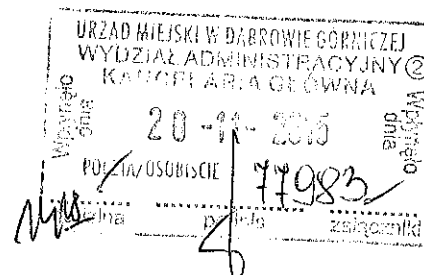 URZĄD MIEJSKI W DĄBROWIE GÓRNICZEJ
WYDZIAŁ ADMINISTRACYJNY ②
KANCELARIA GŁÓWNA
Wpłynęło dnia
20 -11- 2015
Wpłynęło dnia
POCZTA/OSOBIŚCIE 77983
podpis załączniki